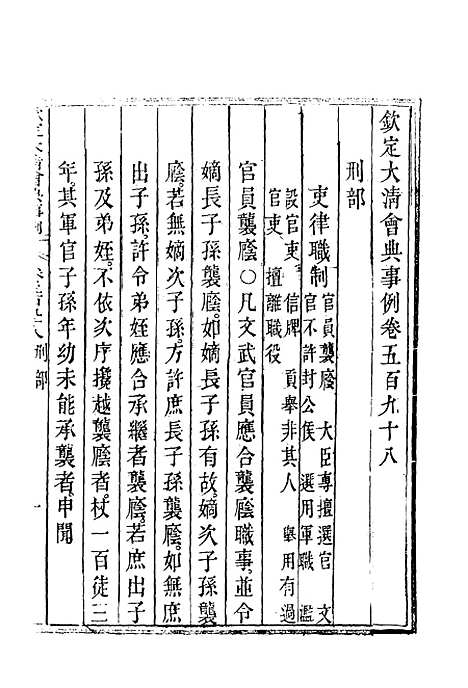 欽定大清會典事例卷五百九十八
刑部
吏律職制 官員襲廕 大臣專擅選官 文
官不許封公侯 選用軍職 濫
設官吏 信牌 貢舉非其人 舉用有過
官吏 擅離職役
官員襲廕○凡文武官員應合襲廕職事並令
嫡長子孫襲廕如嫡長子孫有故嫡次子孫襲
廕若無嫡次子孫方許庶長子孫襲廕如無庶
出子孫許令弟姪應合承繼者襲廕若庶出子
孫及弟姪不依次序攙越襲廕者杖一百徒三
年其軍官子孫年幼未能承襲者申聞
欽定大清會典事例 卷五百九十八 刑部 一